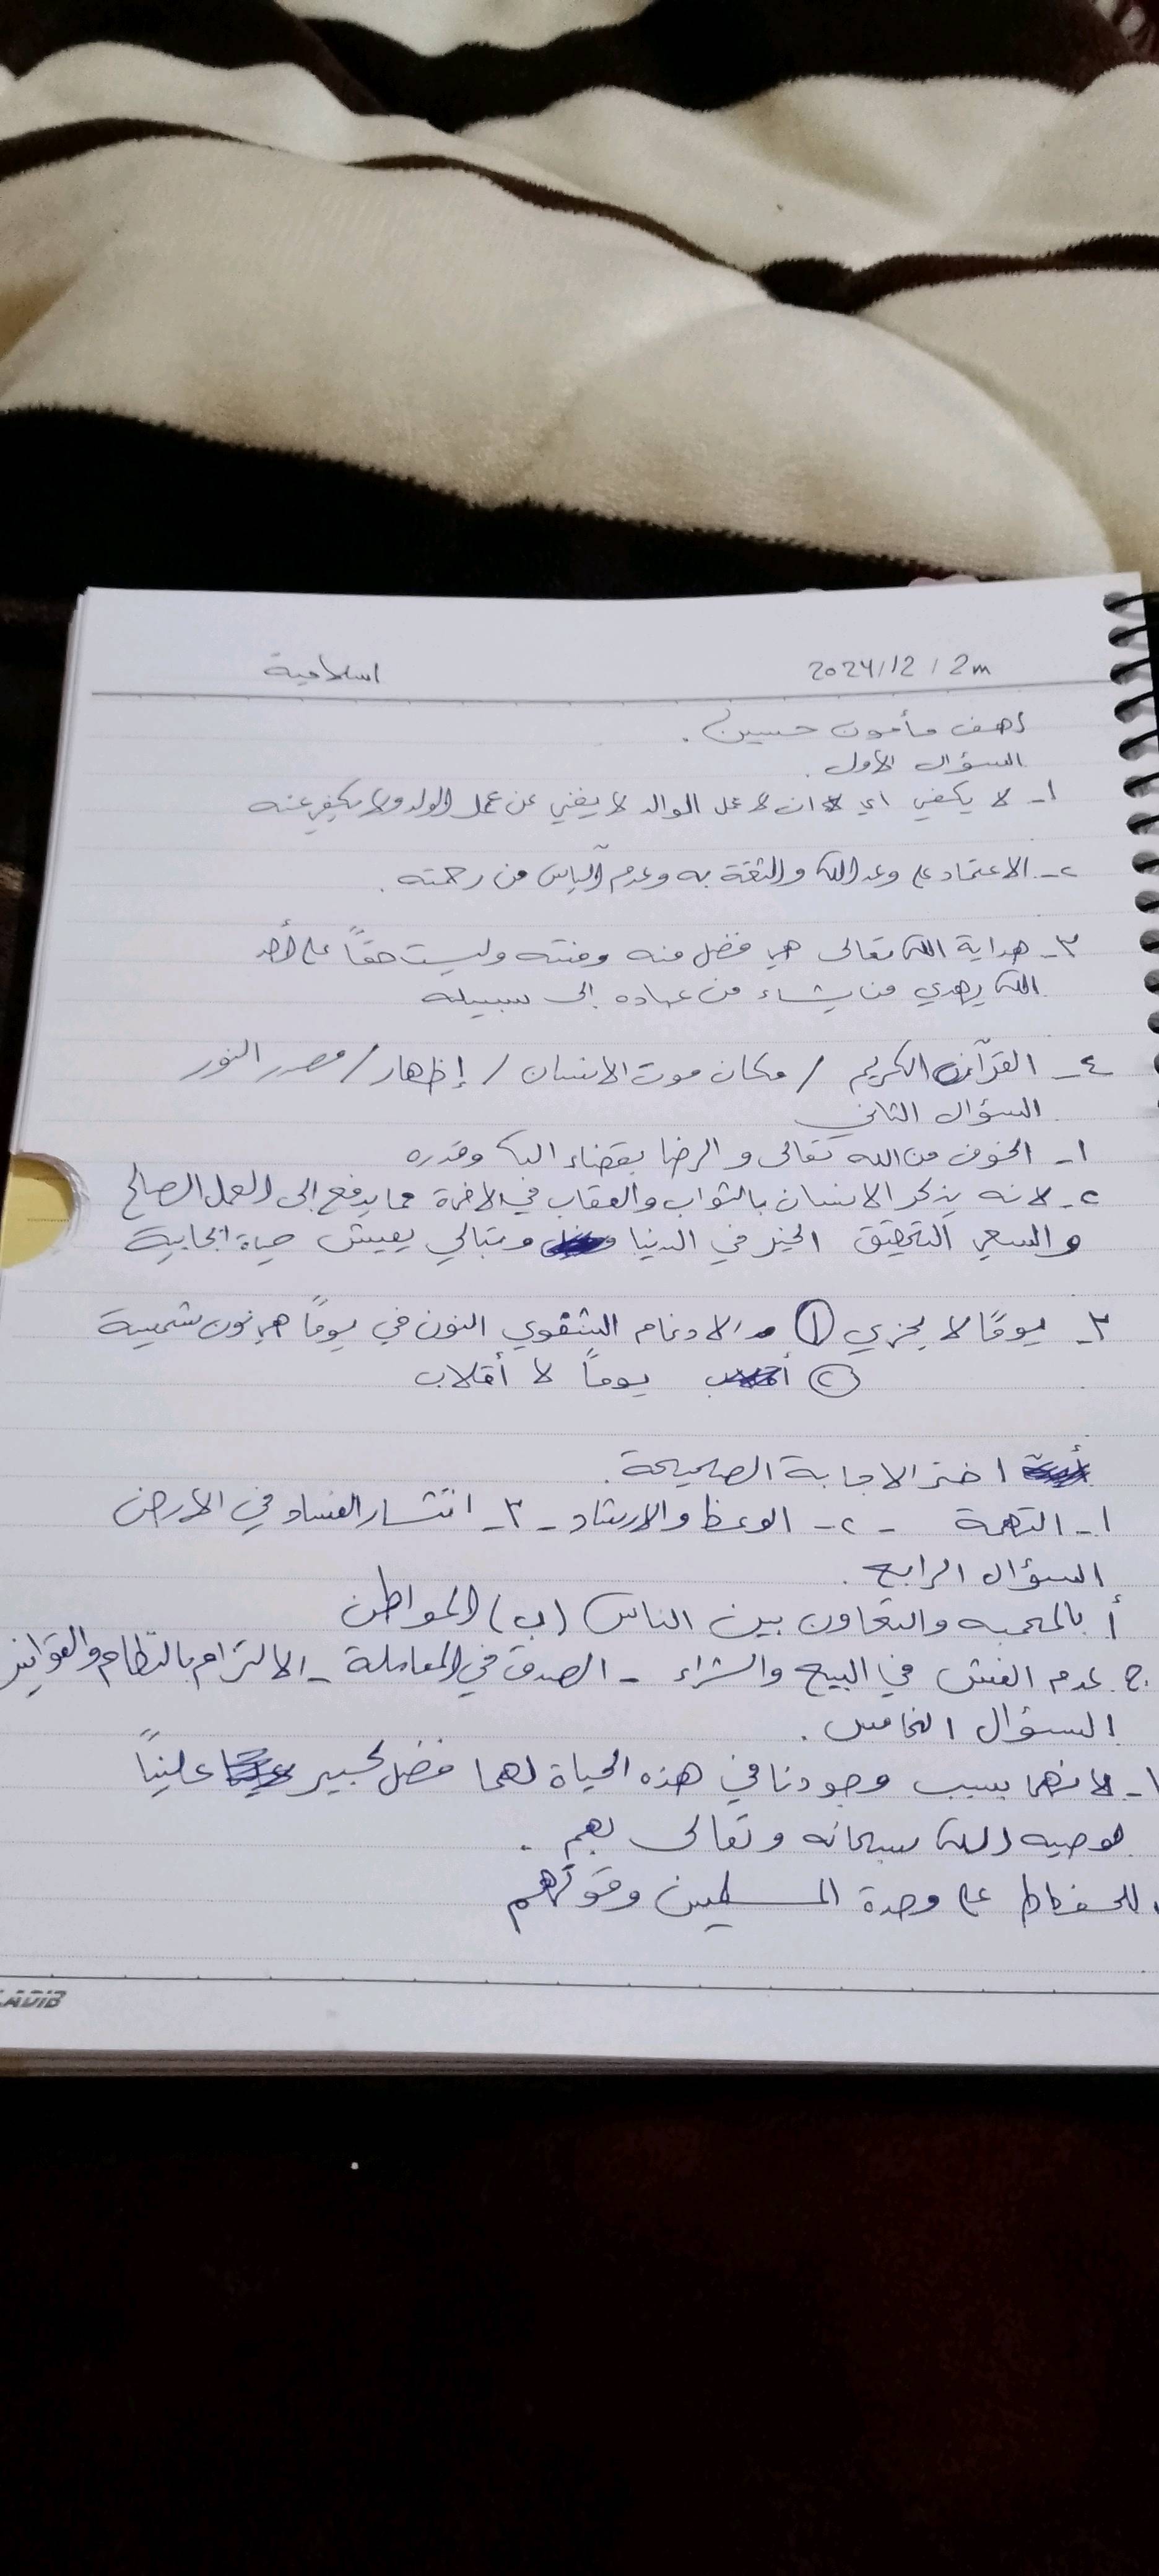 2024/12/2m اسلامية
رهف مأمون حسين.
السؤال الأول.
١- لا يكفي اي ان لا عمل الوالد لا يغني عن عمل الولد ولا يكفي عنه
٢- الاعتماد على وعد الله والثقة به وعدم اليأس من رحمته.
٣- هداية الله تعالى هي فضل منه ومنته وليست حقاً على أحد
الله يهدي من يشاء من عباده إلى سبيله
٤- القرآن الكريم / مكان موت الانسان / إظهار / مصدر النور
السؤال الثاني
١- الخوف من الله تعالى والرضا بقضاء الله وقدره
٢- لانه يذكر الانسان بالثواب والعقاب في الاخرة مما يدفع إلى العمل الصالح
والسعي التحقيق الخير في الدنيا وبتالي يعيش حياة ايجابية
٣- يومًا لا يجزي ① الادغام الشفوي النون في يومًا هي نون شمية
② يومًا لا أقلاب
اختر الاجابة الصحيحة.
١- التهمة - ٢- الوعظ والارشاد - ٣- انتشار الفساد في الارض
السؤال الرابع.
أ بالمحبه والتعاون بين الناس (ب) المواطن
ج. عدم الغش في البيع والشراء - الصدق في المعاملة - الالتزام بالنظام والقوانين
السؤال الخامس.
١- لانهما بسبب وجودنا في هذه الحياة لهما فضل كبير علينًا
لوصيه الله سبحانه وتعالى بهم.
للحفاظ على وحدة المسلمين وقوتهم
LADIB